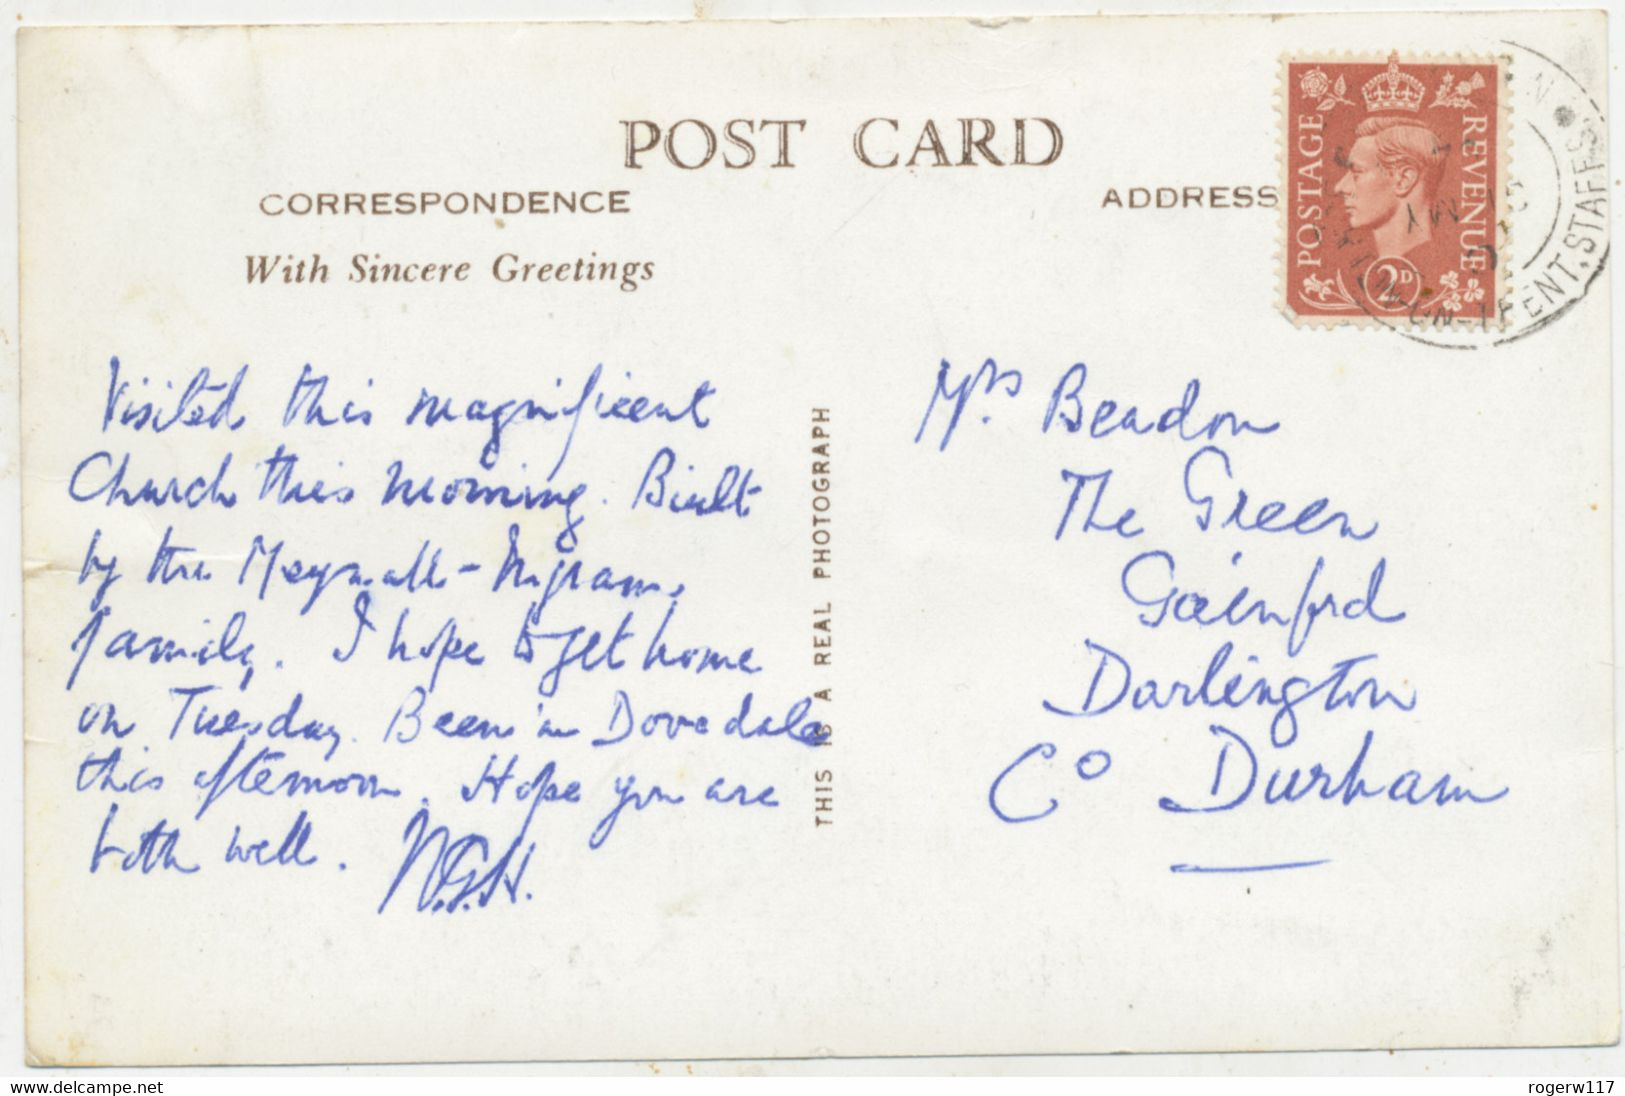 POST CARD
CORRESPONDENCE
ADDRESS
With Sincere Greetings
POSTAGE
REVENUE
2D
ENT.STAFFS
Visited this magnificent
Church this morning. Built
by the Meynell-Ingram
family. I hope to get home
on Tuesday. Been in Dovedale
this afternoon. Hope you are
both well. N.G.H.
THIS IS A REAL PHOTOGRAPH
Mrs Beadon
The Green
Gainford
Darlington
Co Durham
www.delcampe.net
rogerw117